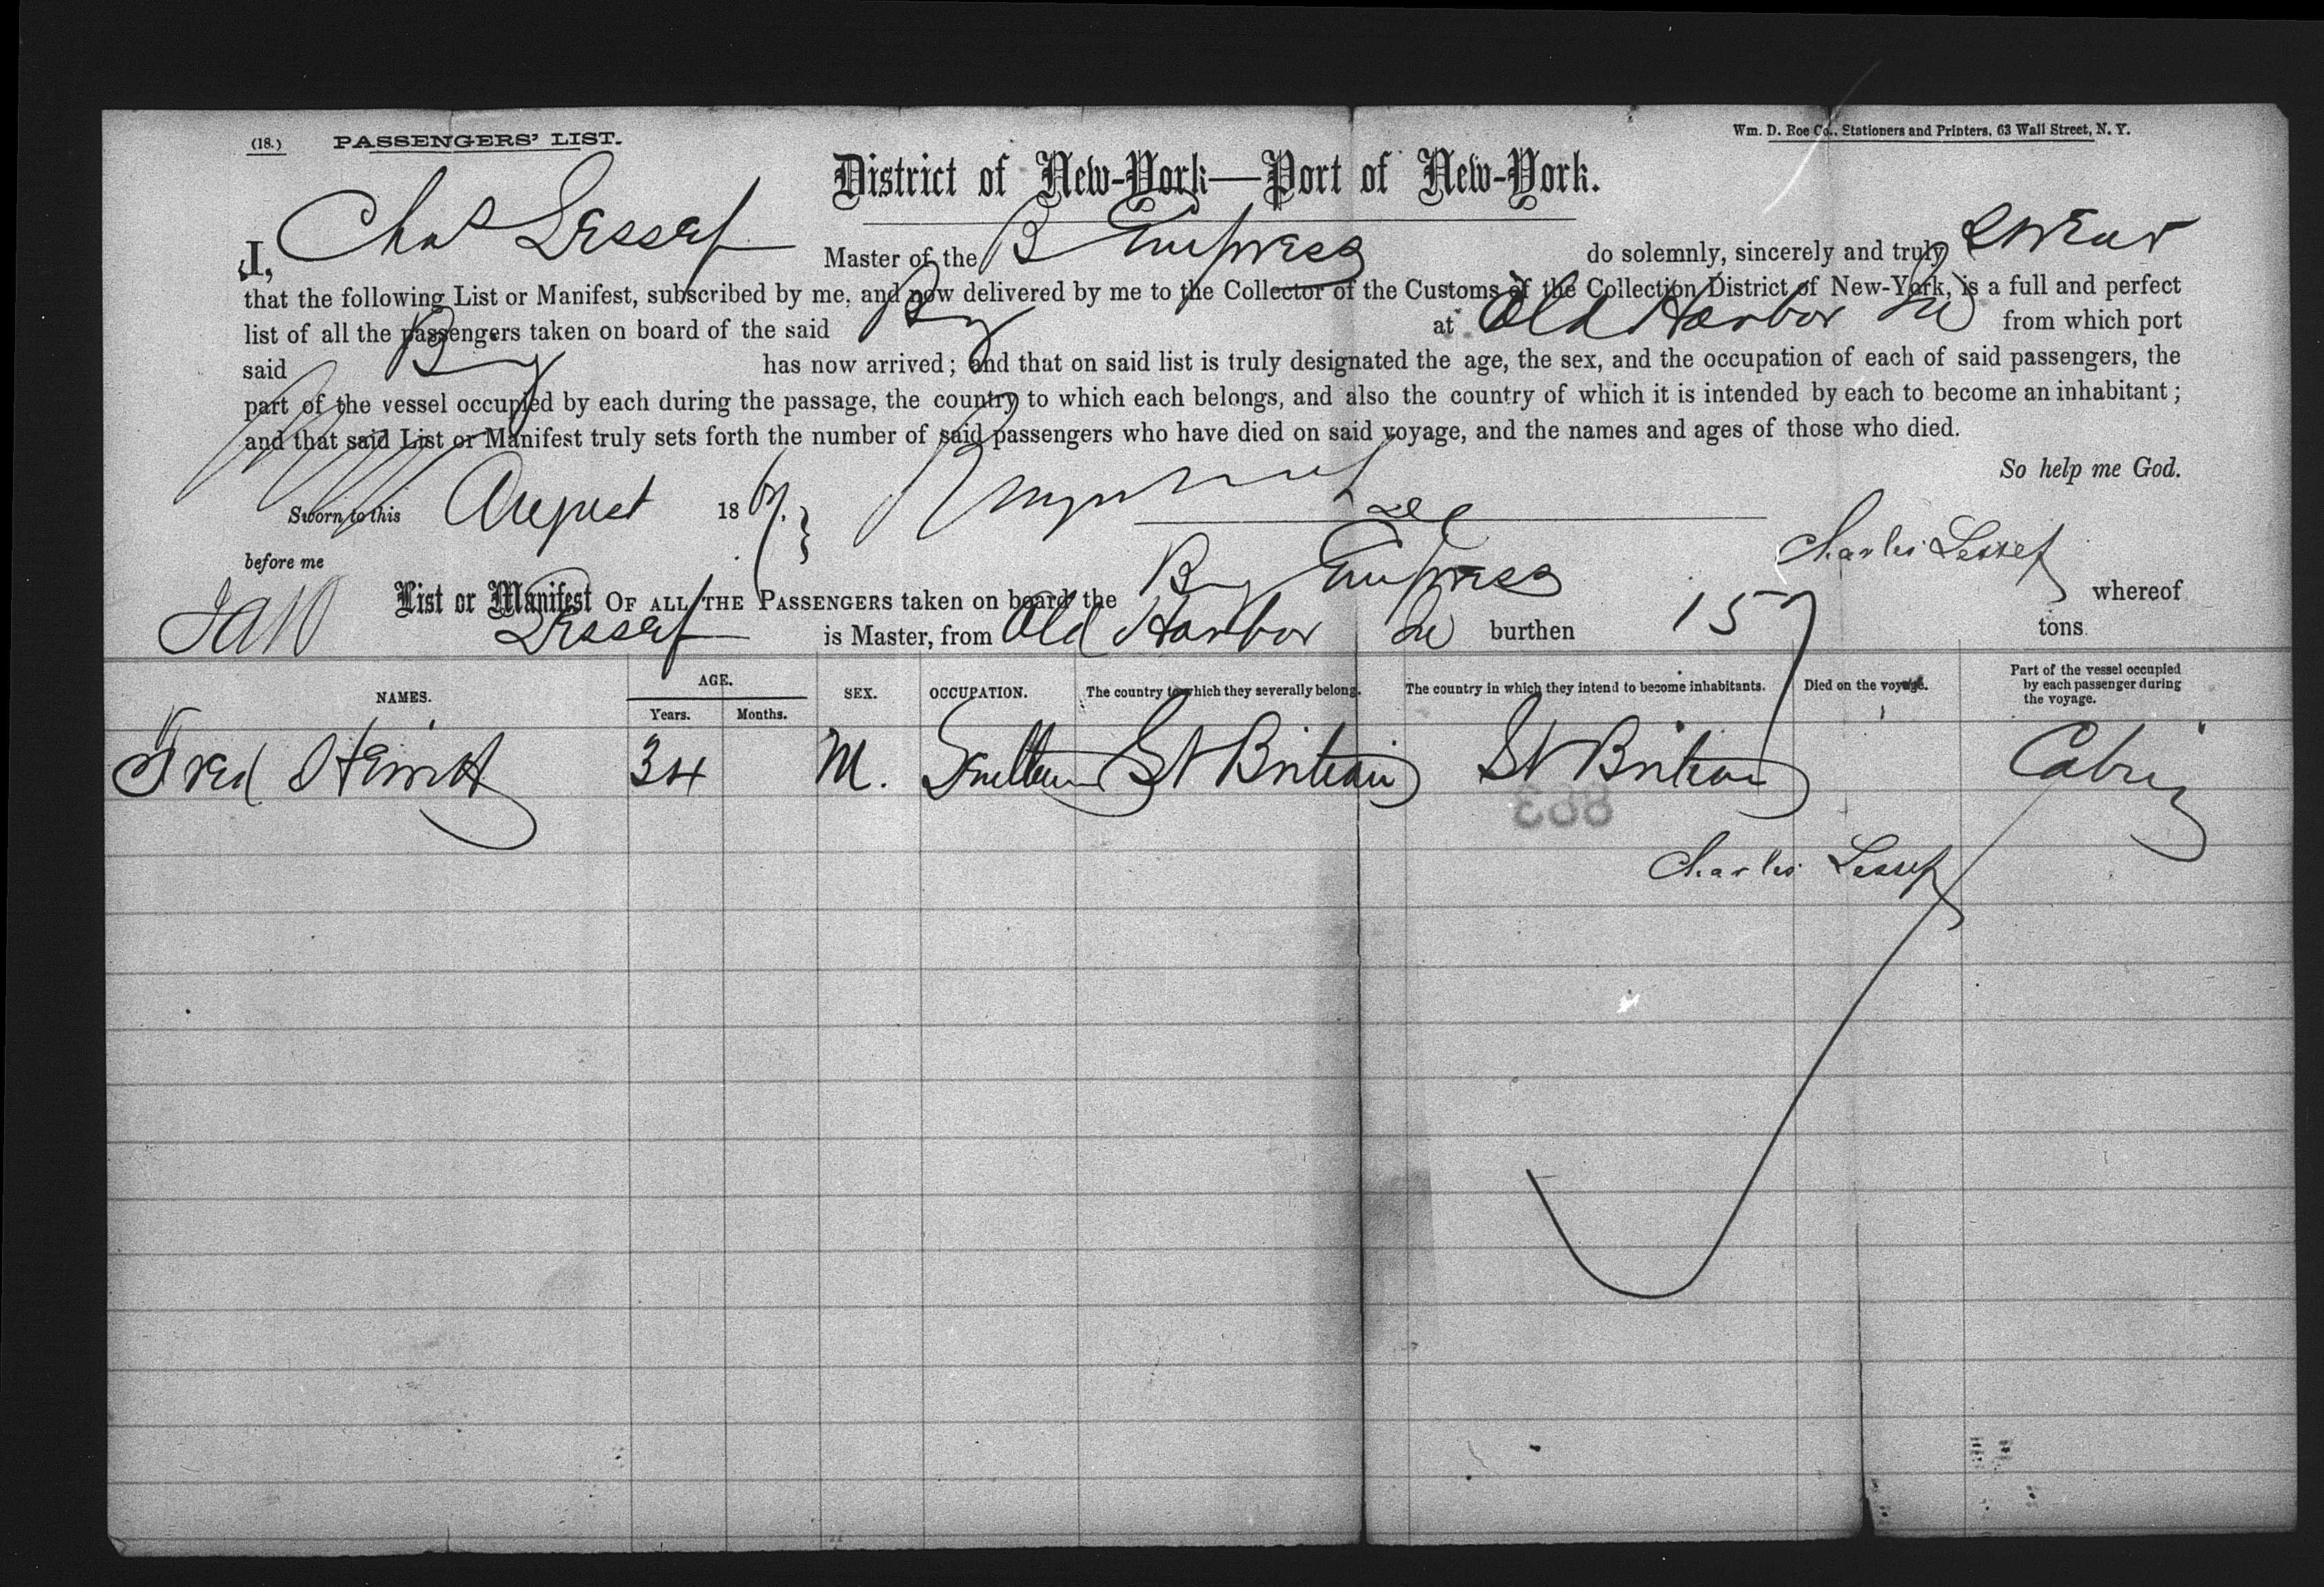 (18.) PASSENGERS' LIST.
Wm. D. Roe Co., Stationers and Printers, 63 Wall Street, N. Y.
District of New-York—Port of New-York.
I, Chas Lessef Master of the B Empress do solemnly, sincerely and truly swear
that the following List or Manifest, subscribed by me, and now delivered by me to the Collector of the Customs of the Collection District of New-York, is a full and perfect
list of all the passengers taken on board of the said Bg at Old Harbor from which port
said Bg has now arrived; and that on said list is truly designated the age, the sex, and the occupation of each of said passengers, the
part of the vessel occupied by each during the passage, the country to which each belongs, and also the country of which it is intended by each to become an inhabitant;
and that said List or Manifest truly sets forth the number of said passengers who have died on said voyage, and the names and ages of those who died.
So help me God.
Sworn to this August 18
Charles Lessef
before me
List or Manifest OF ALL THE PASSENGERS taken on board the Bg Empress whereof
Lessef is Master, from Old Harbor burthen 157 tons
NAMES.
AGE.
Years.
Months.
SEX.
OCCUPATION.
The country to which they severally belong.
The country in which they intend to become inhabitants.
Died on the voyage.
Part of the vessel occupied
by each passenger during
the voyage.
Fred 34 M. Gt Britain Gt Britain Cabin
Charles Lessef